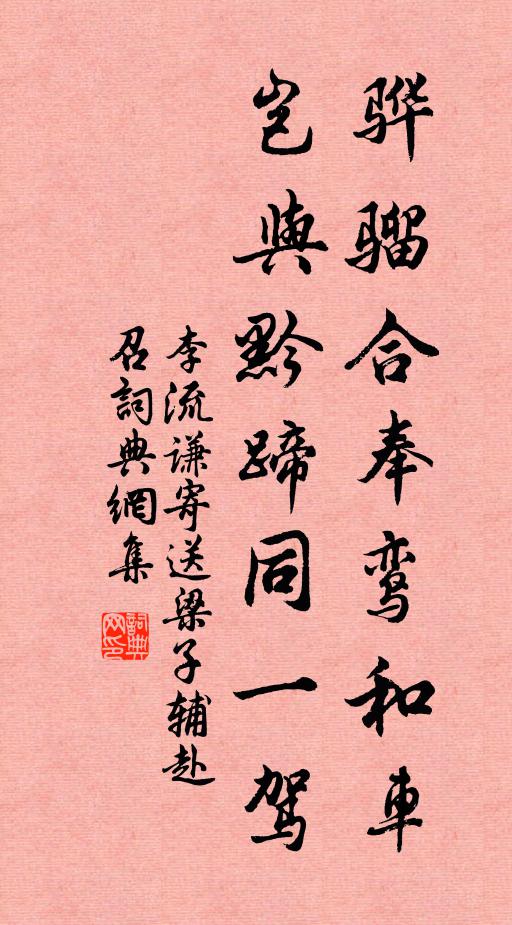 骅骝合奉鸾和車
岂與黔蹄同一驾
李流谦寄送梁子辅赴
召詞典網集
詞典网印